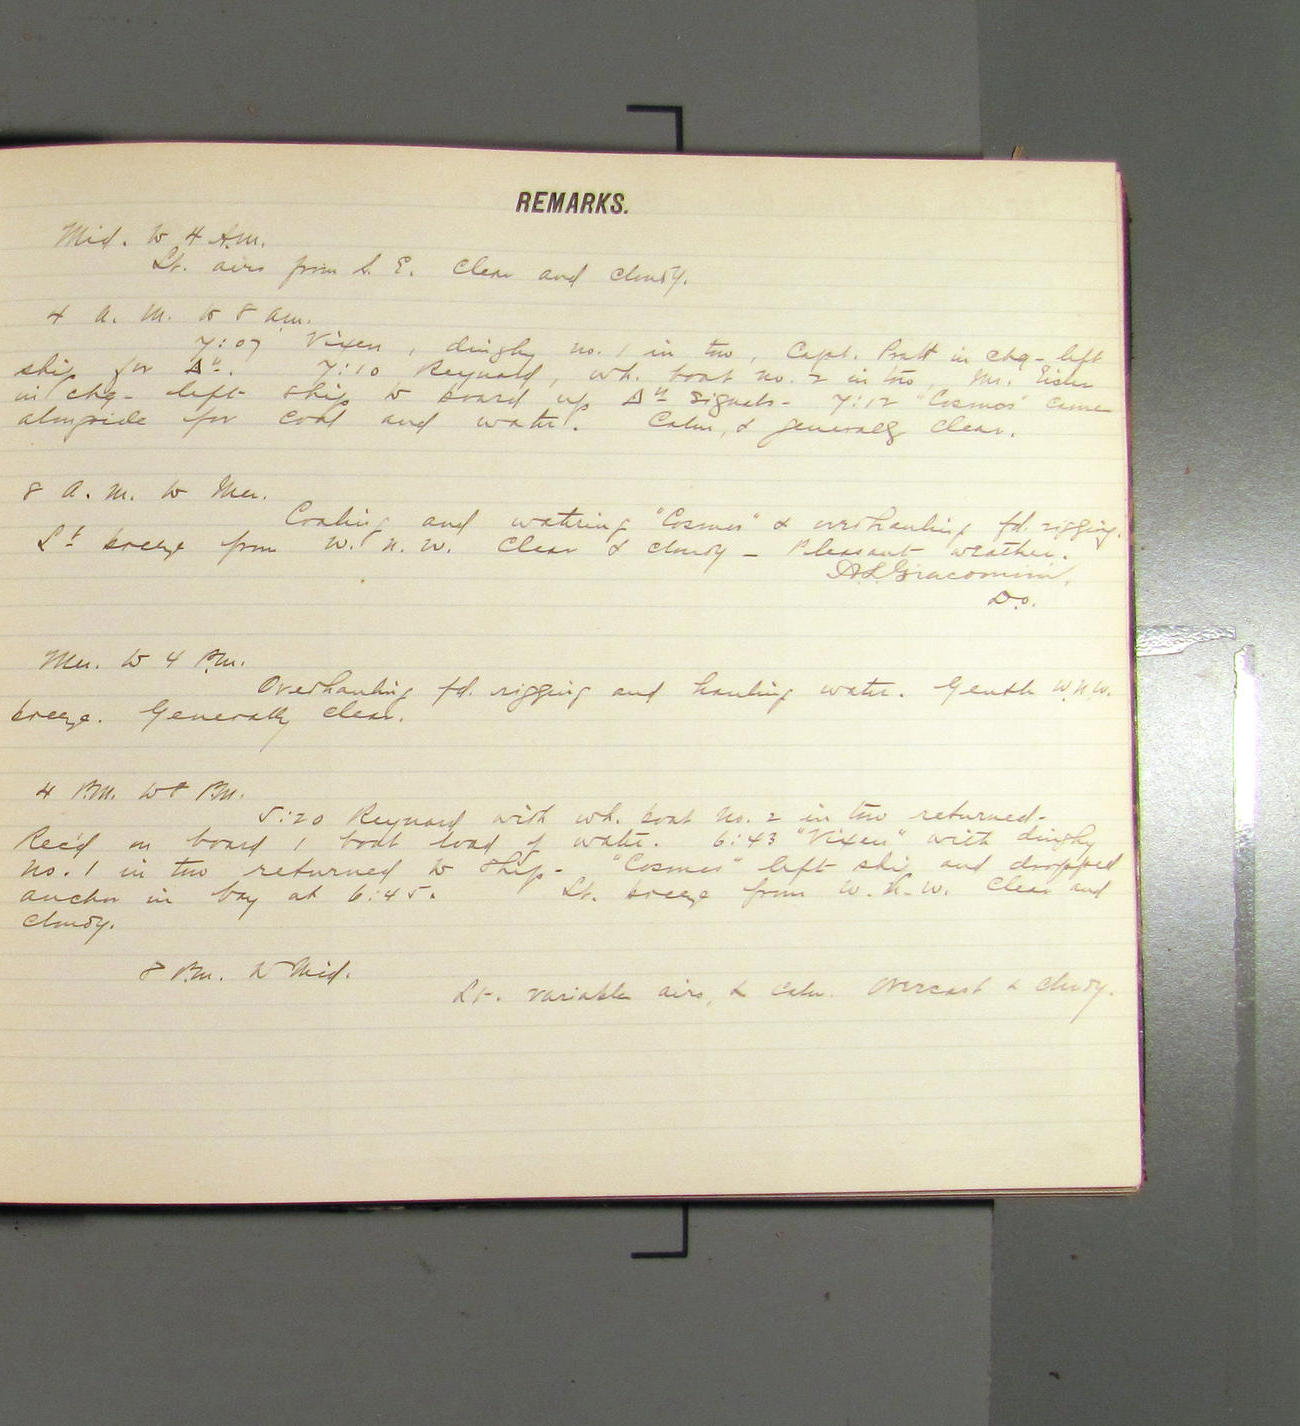 REMARKS.
Mid. to 4 A.M.
Lt. airs from S. E. Clear and cloudy.
4 A. M. to 8 a.m.
7:07 Vixen, dinghy no. 1 in tow, Capt. Pratt in chg - left
ship for Δn. 7:10 Reynard, wh. boat no. 2 in tow, Mr. in chg - left ship to board up Δn signals - 7:12 "Cosmos" came
alongside for coal and water. Calm, & generally clear.
8 A. M. to Mer.
Coaling and watering "Cosmos" & overhauling fd. rigging.
Lt breeze from W. N. W. Clear & cloudy - Pleasant weather.
A.L. Giacomini,
D.O.
Mer. to 4 P.M.
Overhauling fd. rigging and hauling water. Gentle W.N.W.
breeze. Generally clear.
4 P.M. to 8 P.M.
5:20 Reynard with wh. boat no. 2 in tow returned -
Rec'd on board 1 boat load of water. 6:43 "Vixen" with dinghy
no. 1 in tow returned to ship - "Cosmos" left ship and dropped
anchor in bay at 6:45. Lt. breeze from W. N. W. Clear and
cloudy.
8 P.M. to Mid.
Lt. variable airs, & calm. Overcast & cloudy.